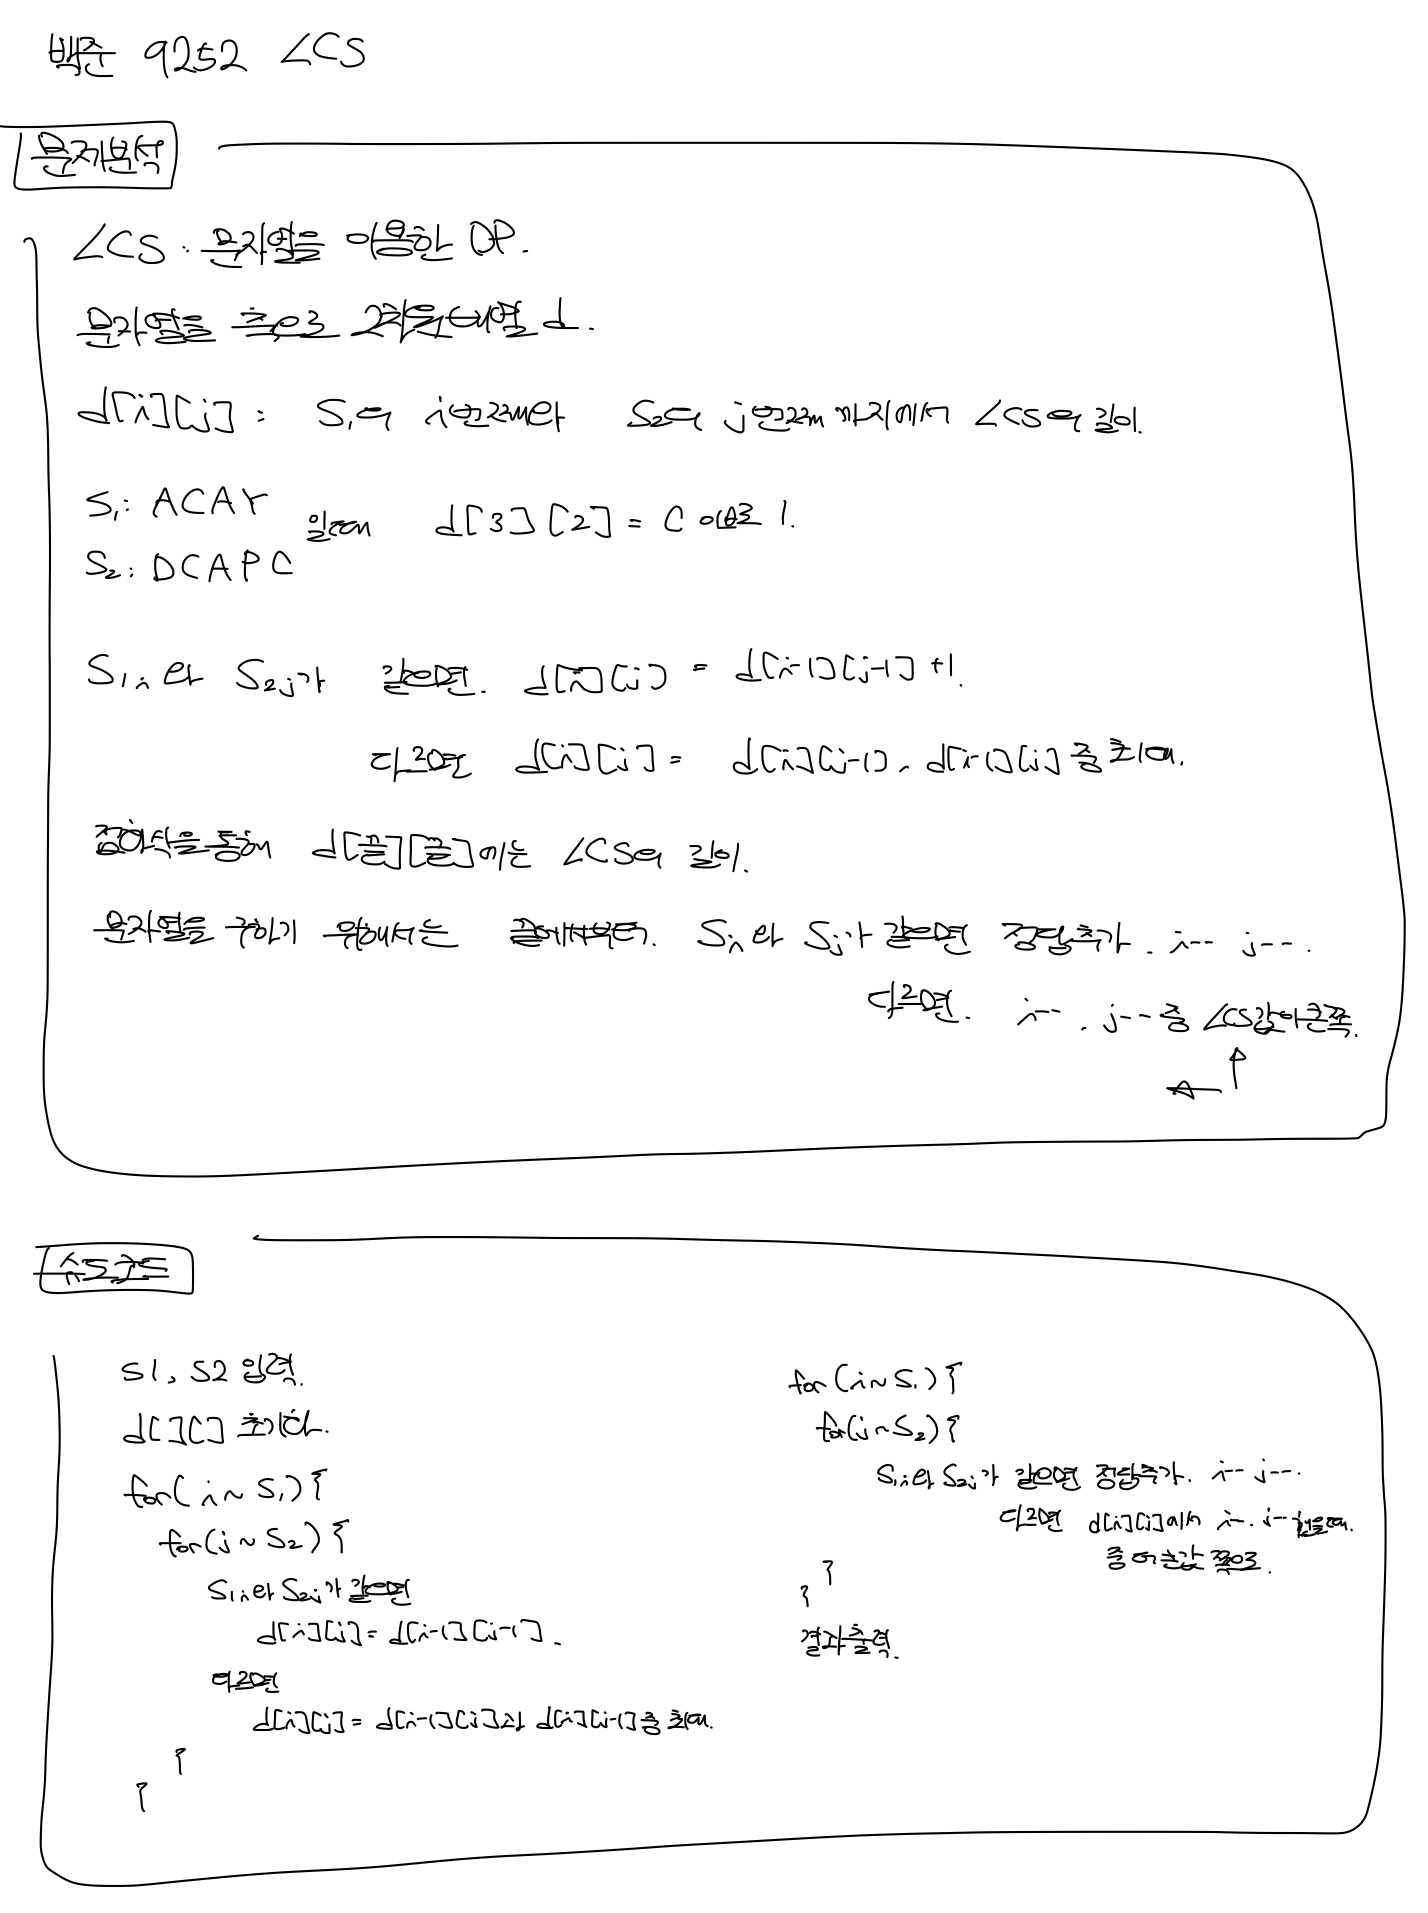 백준 9252 LCS
문제분석
LCS : 문자열을 이용한 DP.
문자열을 축으로 2차원 배열 d.
d[i][j] : S1의 i번째와 S2의 j번째 까지에서 LCS의 길이.
S1: ACAY
일때 d[3][2] = C 이므로 1.
S2: DCAPC
S1i 와 S2j가 같으면. d[i][j] = d[i-1][j-1] +1.
다르면 d[i][j] = d[i][j-1], d[i-1][j] 중 최대.
점화식을 통해 d[끝][끝]에는 LCS의 길이.
문자열을 구하기 위해서는 끝에서부터. Si 와 Sj가 같으면 정답추가. i-- j--.
다르면. i--, j-- 중 LCS값이 큰쪽.
수도코드
S1, S2 입력.
d[][] 초기화.
for(i~S1){
for(j~S2){
S1i와 S2j가 같으면
d[i][j] = d[i-1][j-1].
다르면
d[i][j] = d[i-1][j]과 d[i][j-1] 중 최대.
}
}
for(i~S1){
for(j~S2){
S1i와 S2j가 같으면 정답추가. i-- j--.
다르면 d[i][j]에서 i--. j-- 했을때.
중 더 큰값 쪽으로.
}
}
결과출력.